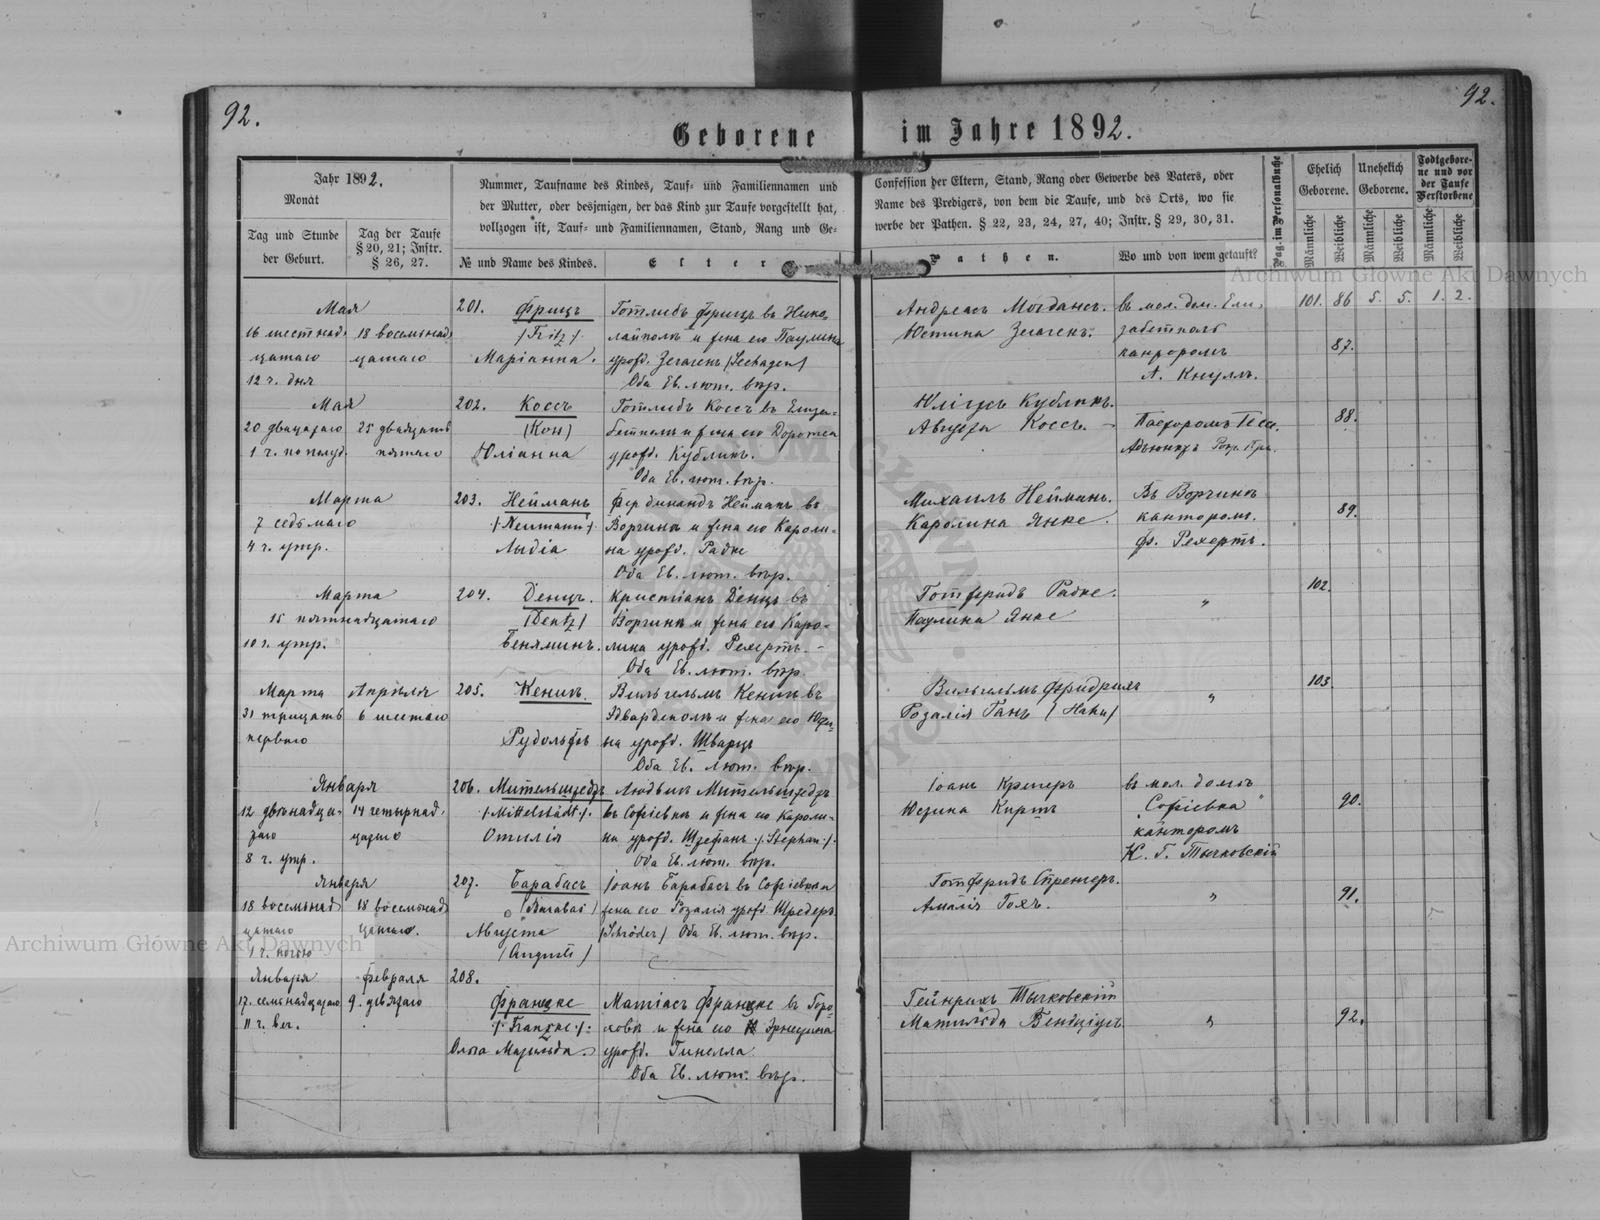 92.
92.
Geborene im Jahre 1892.
Jahr 1892.
Monat
Tag und Stunde
der Geburt.
Tag der Taufe
§ 20, 21; Instr.
§ 26, 27.
Nummer, Taufname des Kindes, Tauf- und Familiennamen und
der Mutter, oder desjenigen, der das Kind zur Taufe vorgestellt hat,
vollzogen ist, Tauf- und Familiennamen, Stand, Rang und Ge-
№ und Name des Kindes.
Elter
Confession der Eltern, Stand, Rang oder Gewerbe des Vaters, oder
Name des Predigers, von dem die Taufe, und des Orts, wo sie
werbe der Pathen. § 22, 23, 24, 27, 40; Instr. § 29, 30, 31.
Pathen.
Wo und von wem getauft?
Pag. im Personalbuche
Ehelich
Geborene.
Unehelich
Geborene.
Todtgebore-
ne und vor
der Taufe
Verstorbene
Männliche
Weibliche
Männliche
Weibliche
Männliche
Weibliche
Мая
16 шестнад-
цатаго
12 ч. дня
18 восемьнад
цатаго
201. Фрицъ
/Fritz/
Маріанна.
Готлибъ Фрицъ въ Нико-
лайполь и жена его Паулина
урожд. Зегагенъ /Seehagen/
Оба Ев. лют. вѣр.
Андреасъ Могдансъ.
Юстина Зегагенъ.
въ мол. дом. Ели-
забетполь
канторомъ
А. Кнулль.
101. 86 5. 5. 1. 2.
87.
Мая
20 двацатаго
1 ч. пополуд.
25 двадцать
пятаго
202. Коссъ
(Koss)
Юліанна
Готлибъ Коссъ въ Елиза-
бетполь и жена его Доротея
урожд. Кубликъ.
Оба Ев. лют. вѣр.
Юліусъ Кубликъ.
Августа Коссъ.
Пасторомъ
Адъюнктъ
88.
Марта
7 седьмаго
4 ч. утр.
203. Нейманъ
/Neumann/
Лидія
Фердинандъ Нейманъ въ
Ворчинъ и жена его Кароли-
на урожд. Радке
Оба Ев. лют. вѣр.
Михаилъ Нейманъ.
Каролина Янке.
Въ Ворчинъ
канторомъ.
Ф. Рехертъ.
89.
Марта
15 пятнадцатаго
10 ч. утр.
204.Денцъ.
/Dentz/
Беняминъ.
Кристіанъ Денцъ въ
Ворчинъ и жена его Каро-
лина урожд. Рехертъ.
Оба Ев. лют. вѣр.
Готфридъ Радке.
Паулина Янке
"
102.
Марта
31 тридцать
перваго
Апрѣля
6 шестаго
205. Кенигъ.
Рудольфъ
Вильгельмъ Кенигъ въ
Эдвардполь и жена его Юсти-
на урожд. Шварцъ
Оба Ев. лют. вѣр.
Вильгельмъ Фридрихъ
Розалія Ганъ /Hahn/
"
103
Января
12 двѣнадца-
таго
8 ч. утр.
14 четырнад-
цатаго
206. Мительштедтъ
/Mittelstädt/.
Отилія
Людвигъ Мительштедтъ
въ Софіевкѣ и жена его Кароли-
на урожд. Штефанъ /Stephan/.
Оба Ев. лют. вѣр.
Іоанъ Кригеръ
Юстина Куртъ
въ мол. домѣ
Софіевка
канторомъ
К. Г. Тычковскій
90.
Января
18 восемьнад
цатаго
1 ч. ночью
18 восемьнад
цатаго.
207. Барабасъ
/Barabas/
Августа
/Auguste/
Іоанъ Барабасъ въ Софіевкѣ и
жена его Розалія урожд Шредеръ
/Schröder/ Оба Ев. лют. вѣр.
Готфридъ Стренгеръ.
Амалія Гохъ.
"
91.
Января
17. семьнадцатаго
11 ч. веч.
Февраля
9. девятаго
208.
Францке
/Franzke/
Ольга Матильда.
Матіасъ Францке въ Горо-
ловкѣ и жена его Эрнестина
урожд. Гинелла
Оба Ев. лют. вѣр.
Гейнрихъ Тычковскій
Матильда Бендціусъ.
"
92.
Archiwum Główne Akt Dawnych
Archiwum Główne Akt Dawnych